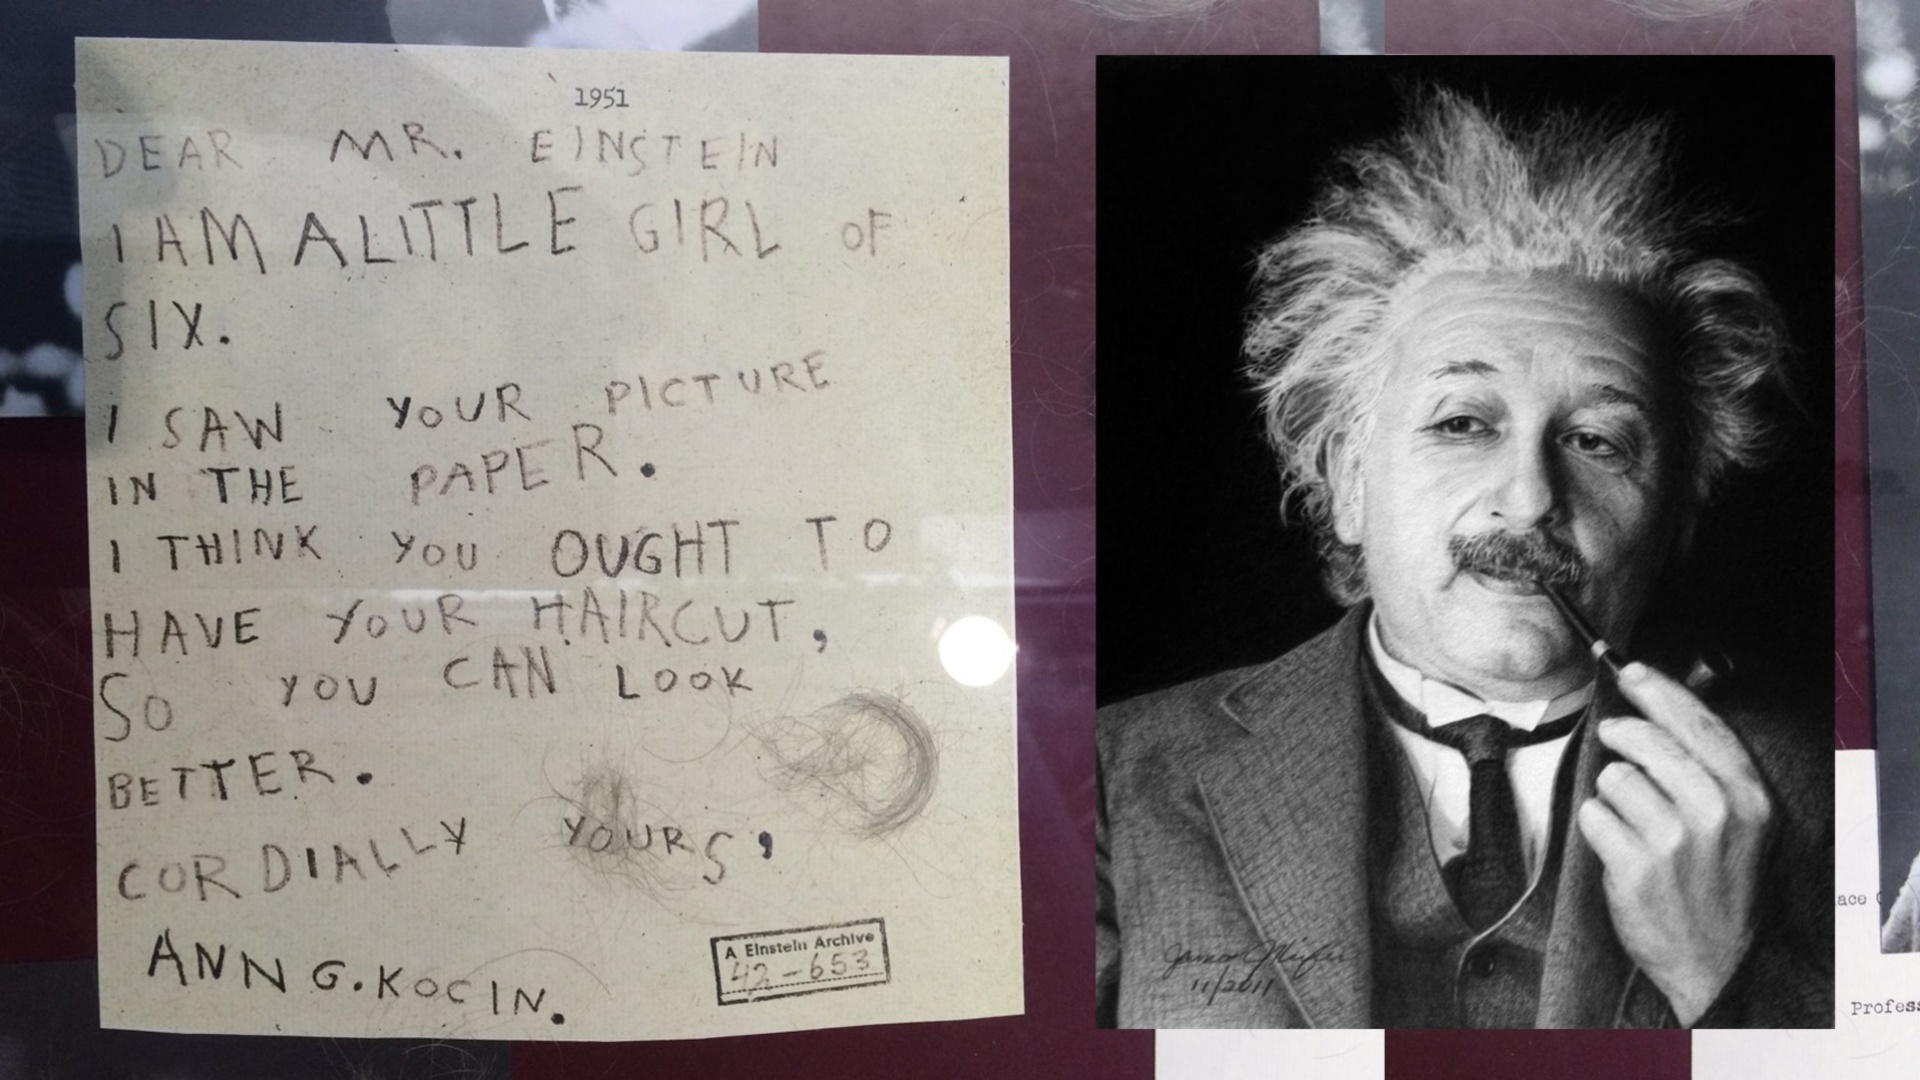 1951
DEAR MR. EINSTEIN
I AM A LITTLE GIRL OF
SIX.
I SAW YOUR PICTURE
IN THE PAPER.
I THINK YOU OUGHT TO
HAVE YOUR HAIRCUT,
SO YOU CAN LOOK
BETTER.
CORDIALLY YOURS,
ANN G. KOCIN.
A Einstein Archive
42-653
11/2011